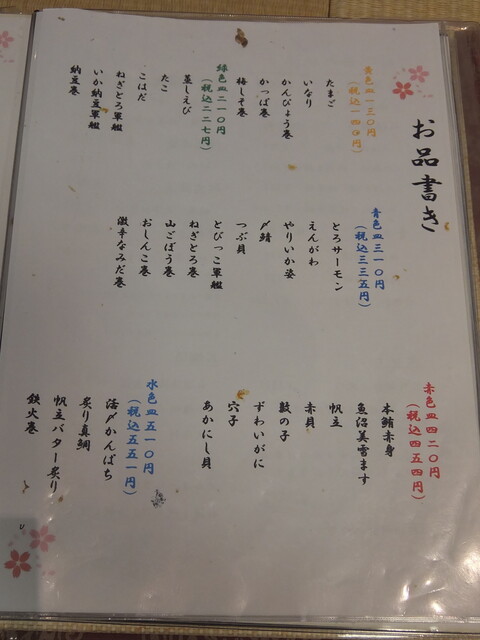 お品書き
黄色皿一三〇円
(税込一四〇円)
たまご
いなり
かんぴょう巻
かっぱ巻
梅しそ巻
緑色皿二一〇円
(税込二二七円)
蒸しえび
たこ
こはだ
ねぎとろ軍艦
いか納豆軍艦
納豆巻
青色皿三一〇円
(税込三三五円)
とろサーモン
えんがわ
やりいか姿
〆鯖
つぶ貝
とびっこ軍艦
ねぎとろ巻
山ごぼう巻
おしんこ巻
激辛なみだ巻
赤色皿四二〇円
(税込四五四円)
本鮪赤身
魚沼美雪ます
帆立
赤貝
数の子
ずわいがに
穴子
あかにし貝
水色皿五一〇円
(税込五五一円)
活〆かんぱち
炙り真鯛
帆立バター炙り
鉄火巻